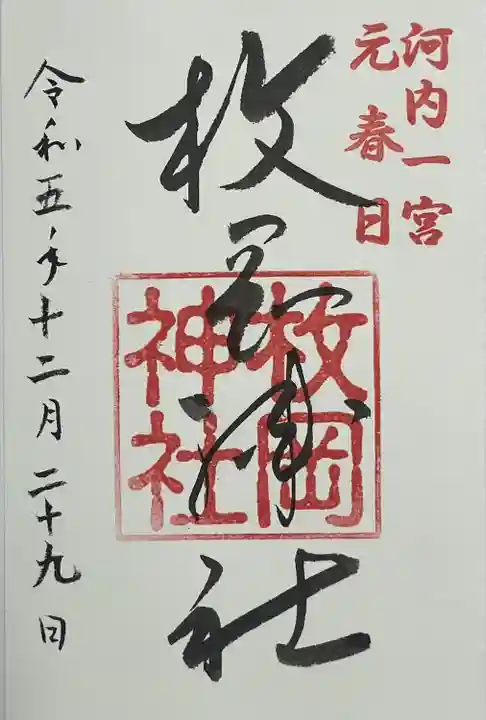 河内一宮
元春日
枚岡神社
枚岡
神社
令和五年十二月二十九日